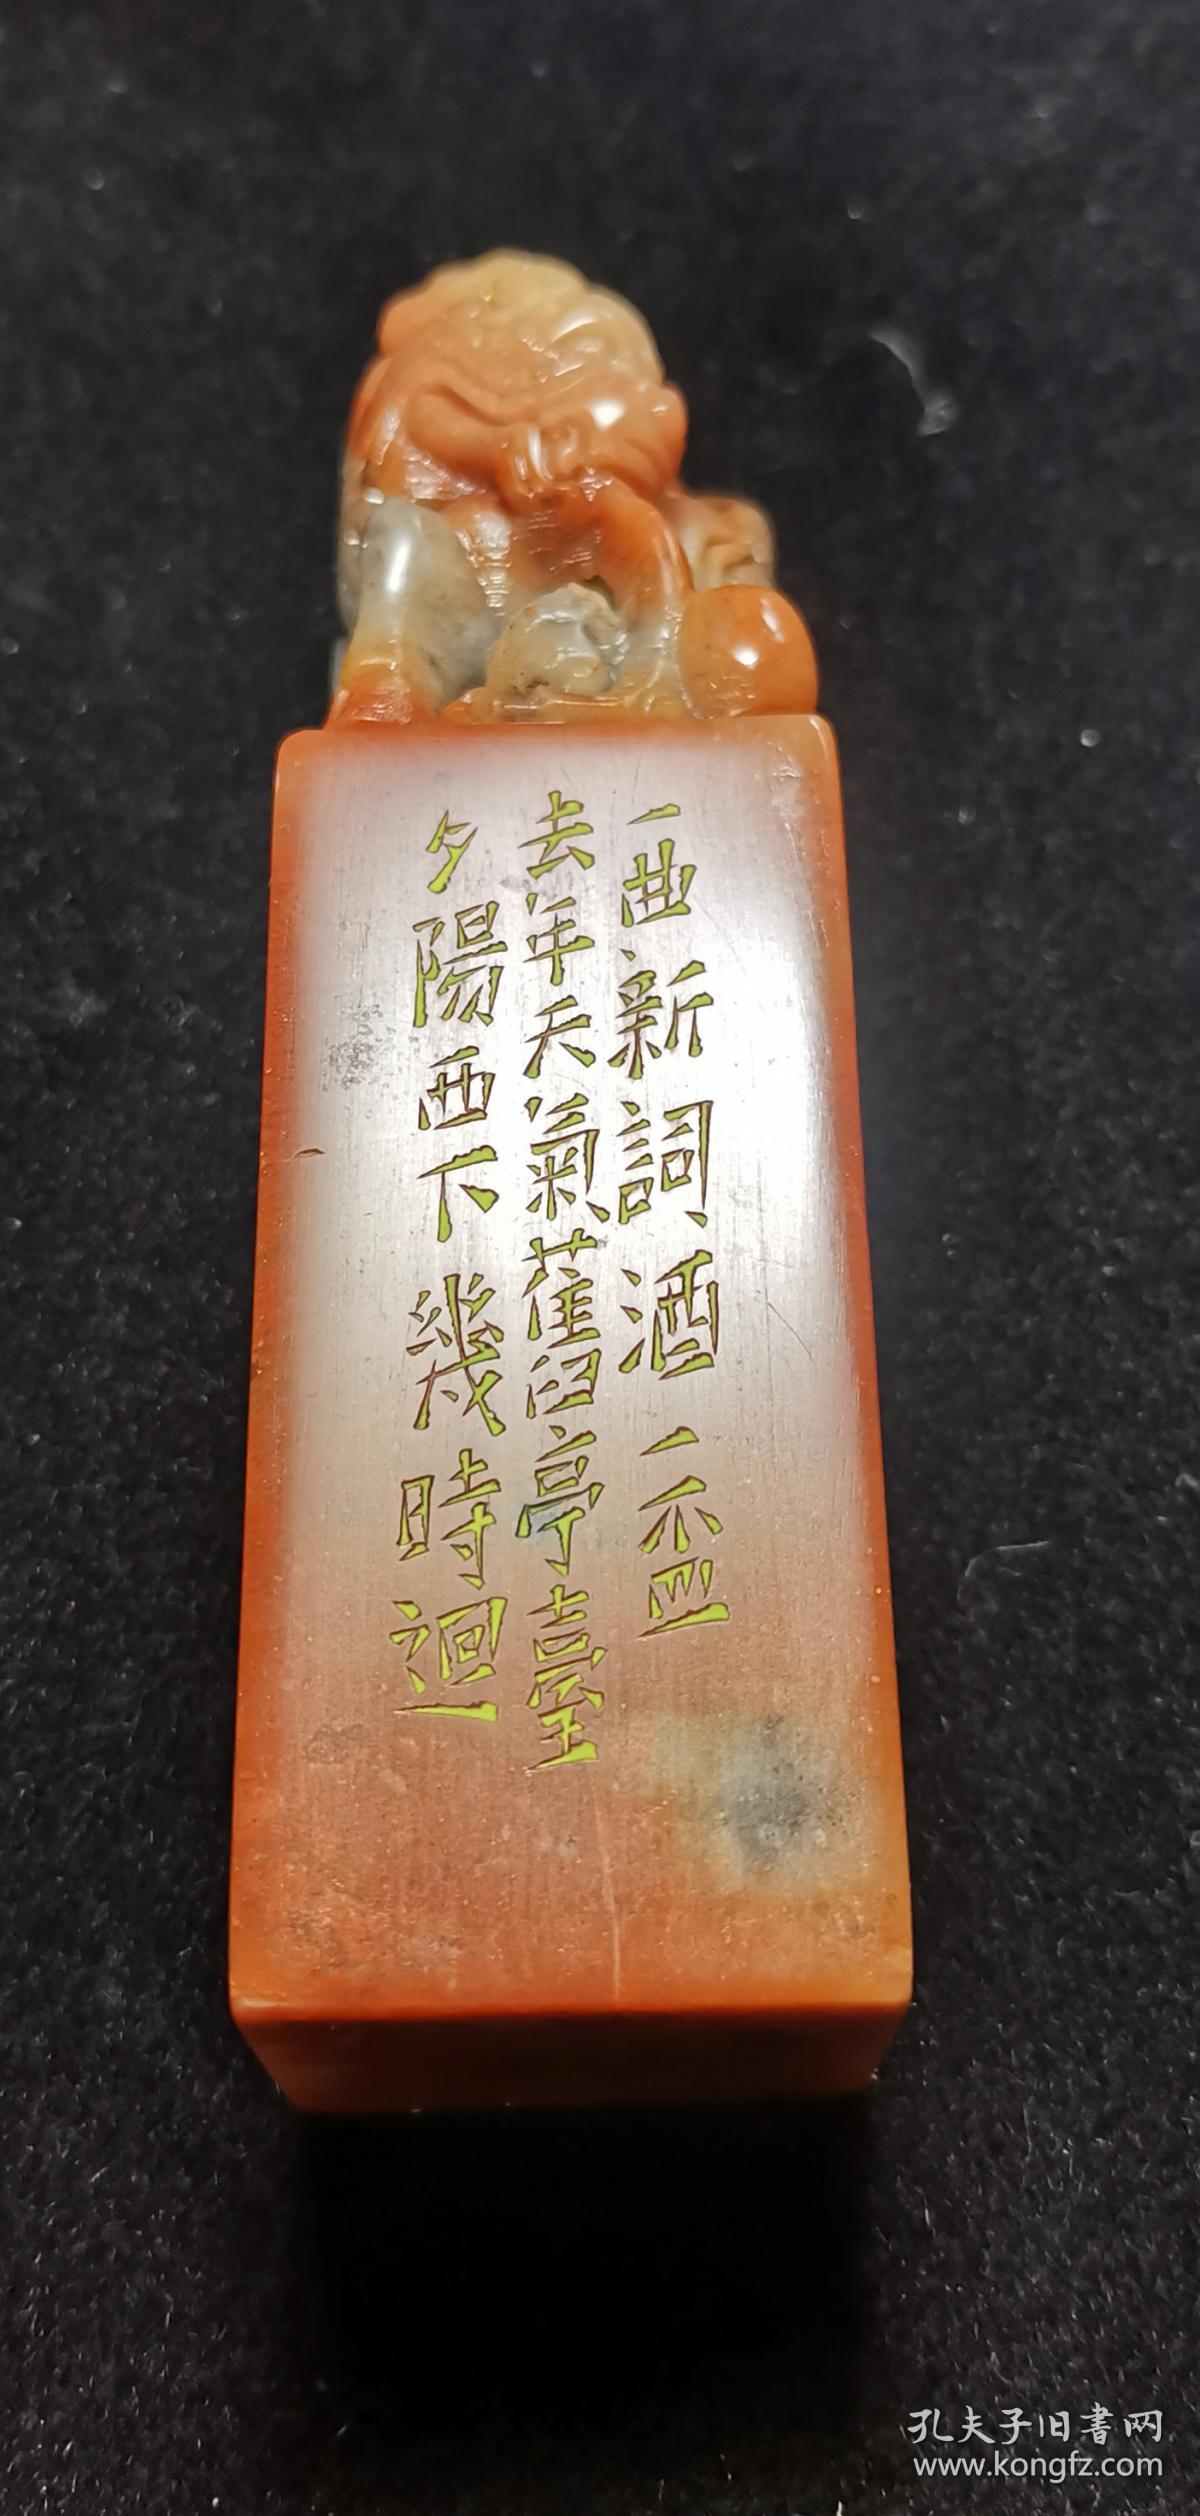 一曲新詞酒一盃
去年天氣舊亭臺
夕陽西下幾時迴
孔夫子旧書网
www.kongfz.com